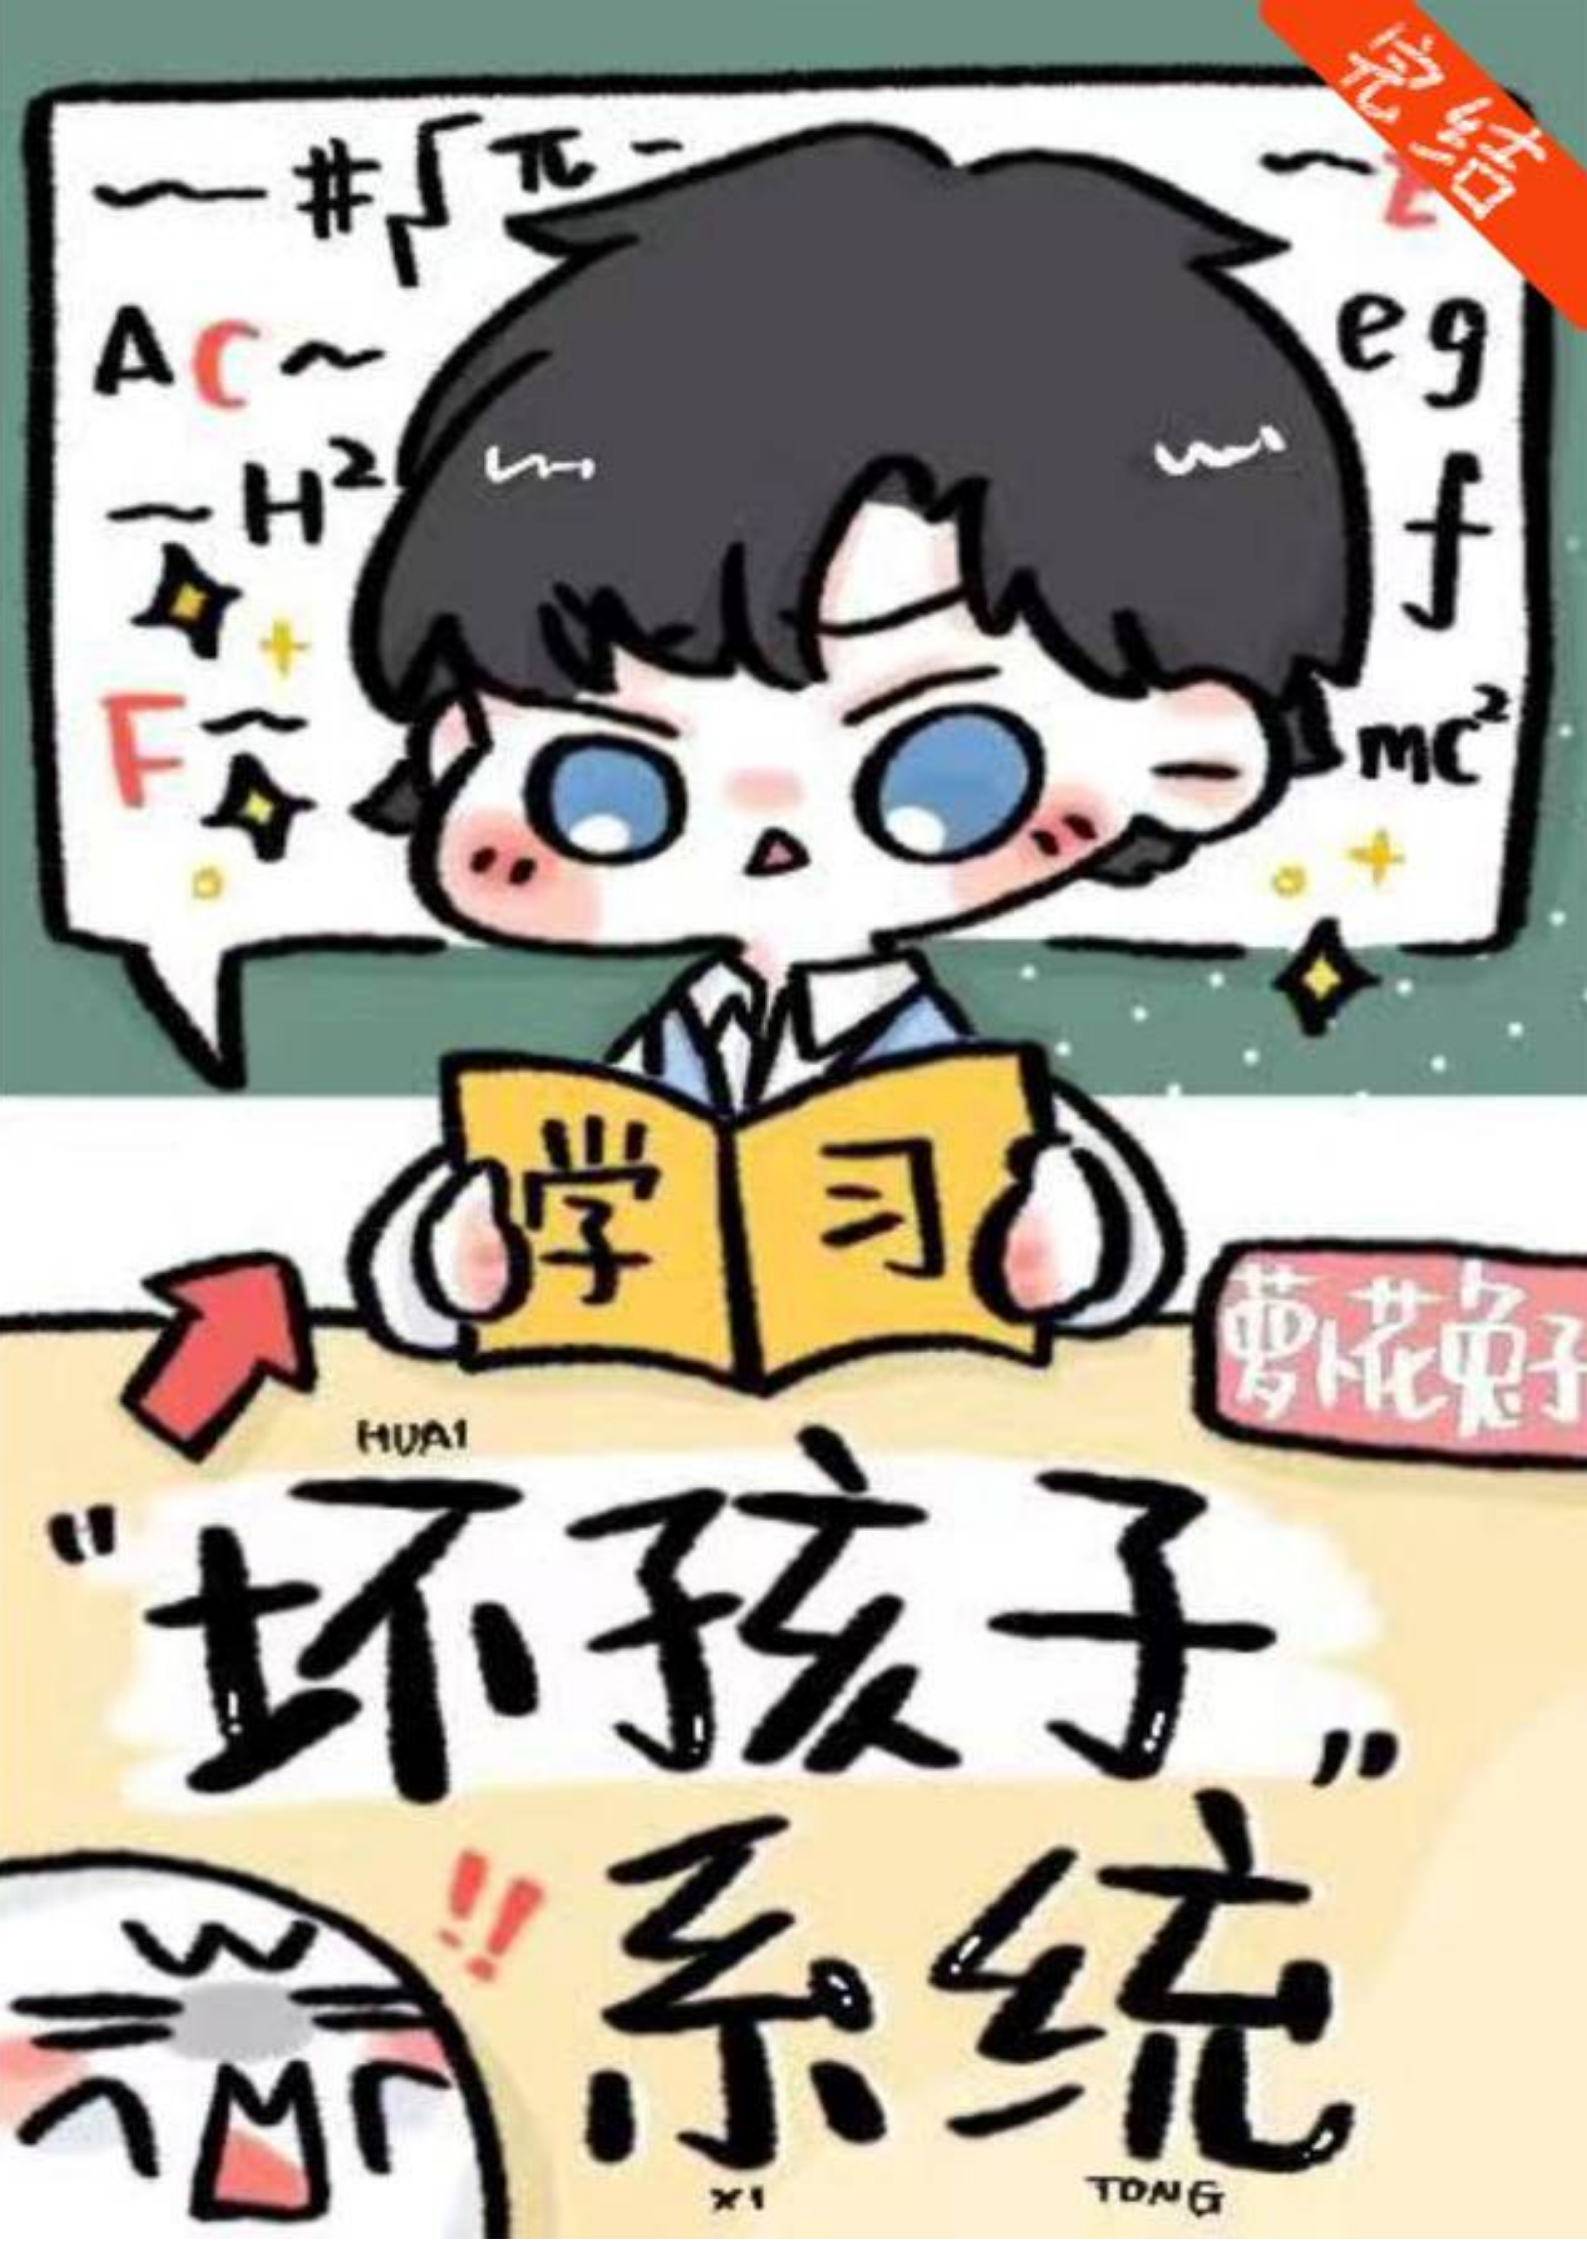 完结
~#√π-
AC~
~H²
F~
~
eg
f
mc²
学习
萝卜花兔子
HUAI
"坏孩子"
!!
系统
XI TONG